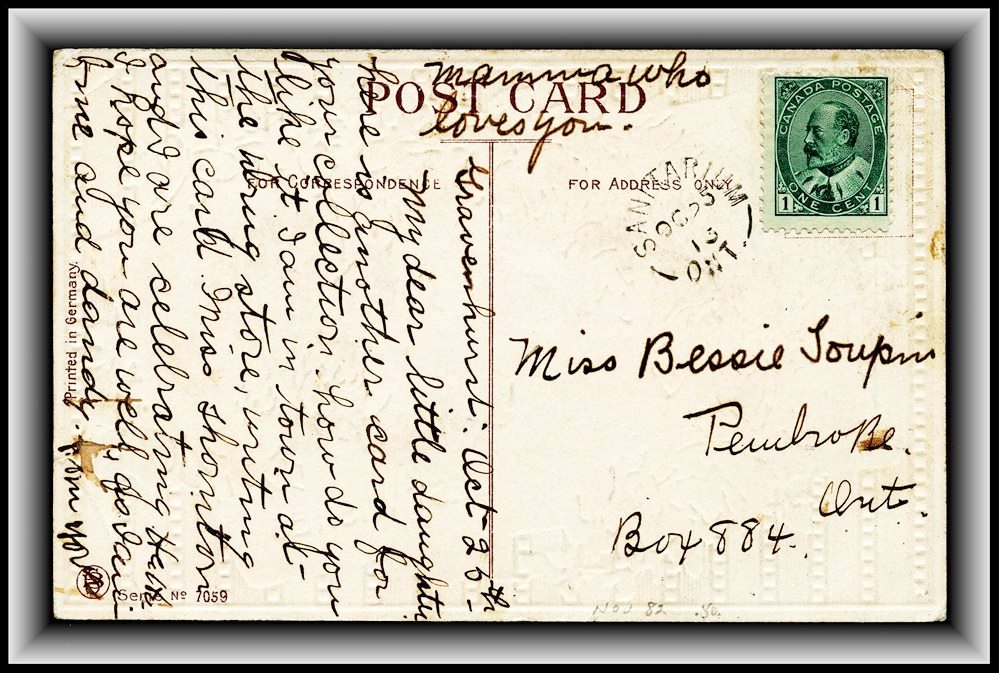 POST CARD
FOR CORRESPONDENCE
FOR ADDRESS ONLY
CANADA POSTAGE
ONE CENT
1 1
SANITARIUM
OC 25
13
ONT.
Gravenhurst. Oct-26th-
My dear little daughter
here is another card for
your collection. how do you
like it I am in town at
the drug store, writing
this card. Miss Thornton
and I are celebrating
I hope you are well, as I am
fine and dandy. from your
mamma who
loves you.
Miss Bessie Soupin
Pembroke.
Ont.
Box 884.
Printed in Germany.
Series No 7059
Nov 82 .50